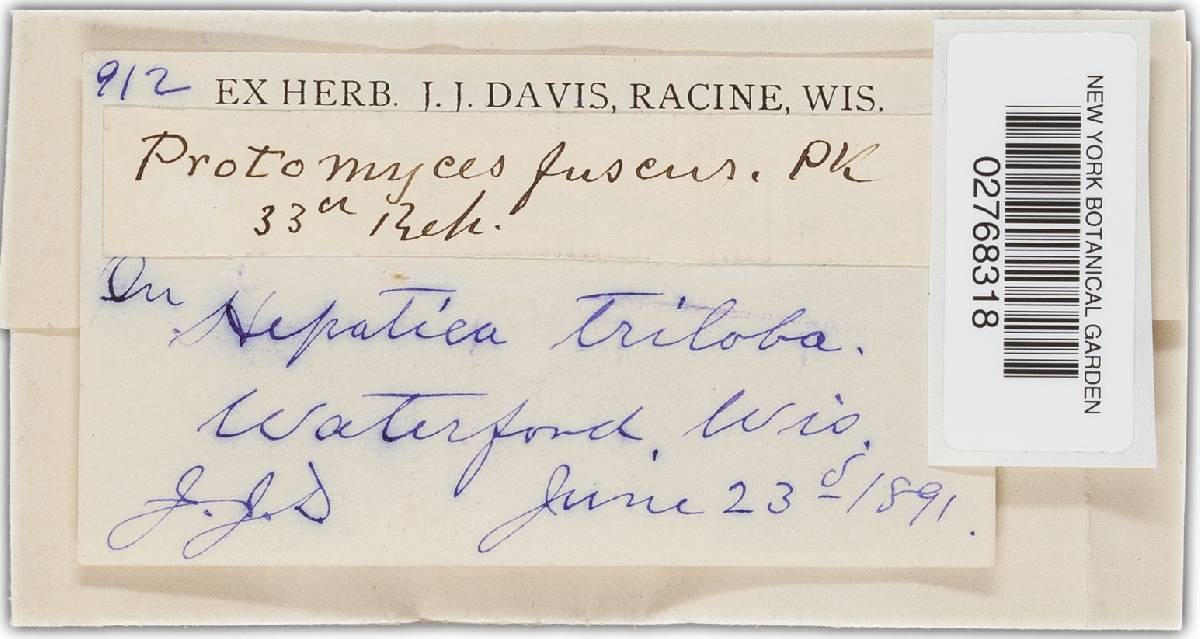 912 EX HERB. J. J. DAVIS, RACINE, WIS.
Protomyces fuscus. Pk
33d Reh.
On Hepatica triloba.
Waterford, Wis.
J.J.D June 23d 1891.
NEW YORK BOTANICAL GARDEN
02768318